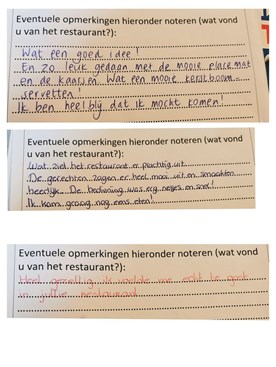 Eventuele opmerkingen hieronder noteren (wat vond
u van het restaurant?):
Wat een goed idee!
En zo leuk gedaan met de mooie placemat
en de kaarsjes. Wat een mooie kerstboom
servetten!
Ik ben heel blij dat ik mocht komen!
Eventuele opmerkingen hieronder noteren (wat vond
u van het restaurant?):
Wat ziet het restaurant er prachtig uit.
De gerechten zagen er heel mooi uit en smaakten
heerlijk. De bediening was erg netjes en snel!
Ik kom graag nog eens eten!
Eventuele opmerkingen hieronder noteren (wat vond
u van het restaurant?):
Heel gezellig, ik voelde me echt te gast
in jullie restaurant